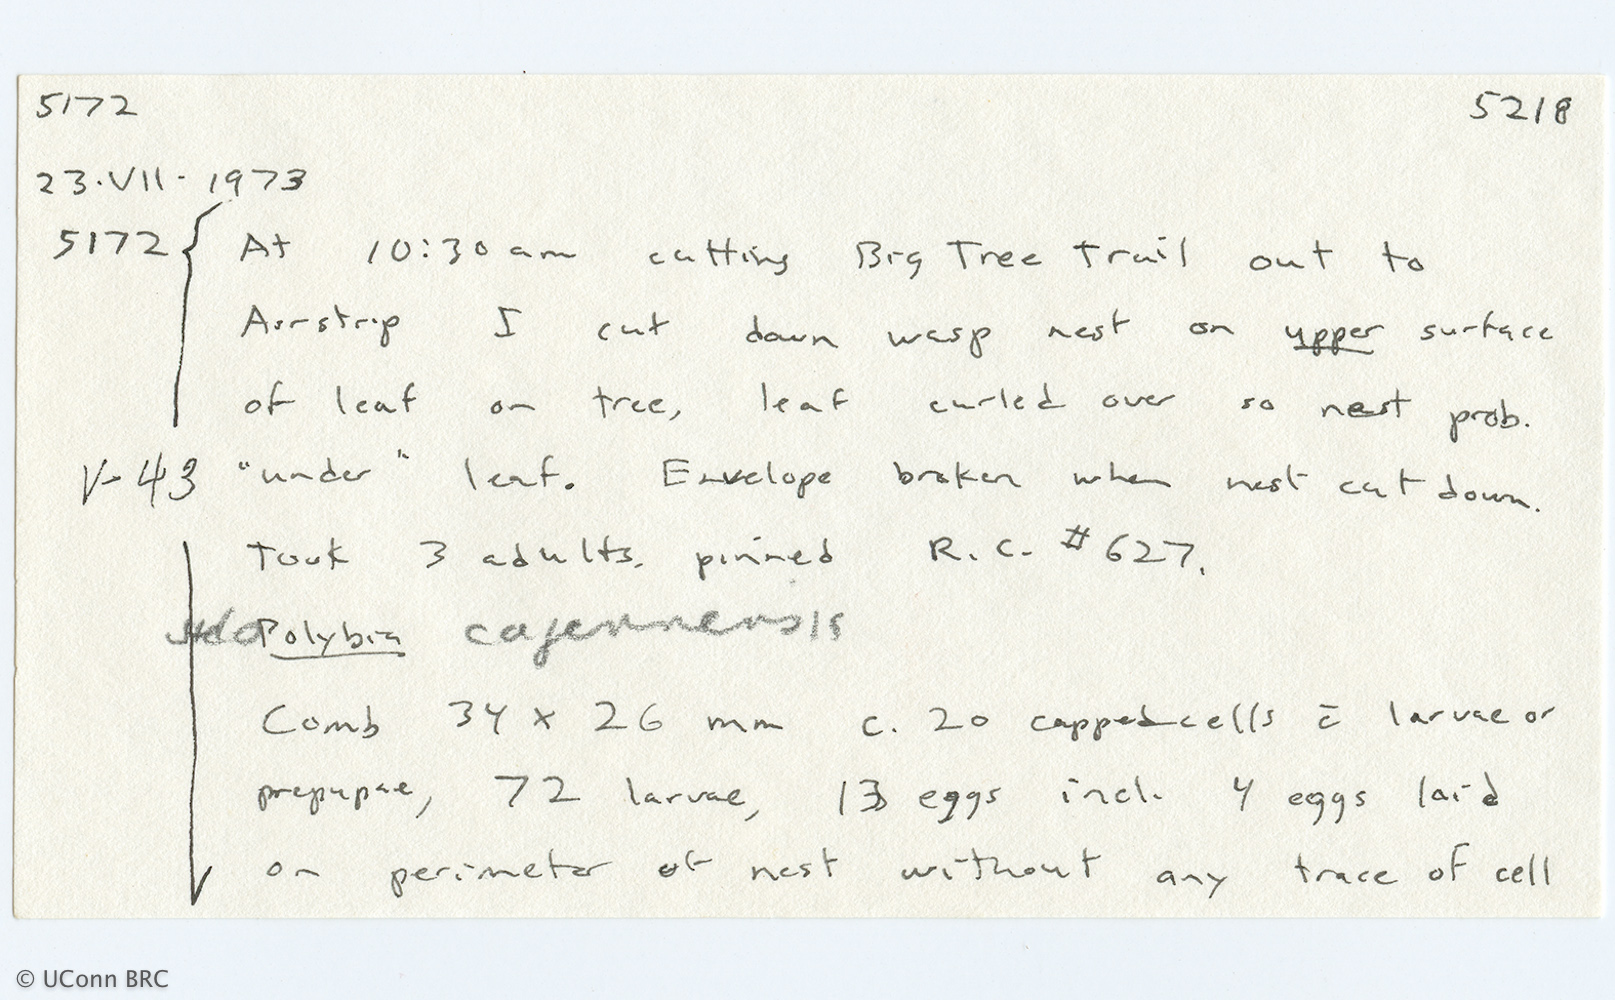 5172 5218
23·VII·1973
5172 { At 10:30 am cutting Big Tree Trail out to
Airstrip I cut down wasp nest on upper surface
of leaf on tree, leaf curled over so nest prob.
V-43 "under" leaf. Envelope broken when nest cut down.
Took 3 adults, pinned R.C. #627.
Polybia cajennensis
Comb 34 x 26 mm c. 20 capped cells c̄ larvae or
prepupae, 72 larvae, 13 eggs incl. 4 eggs laid
on perimeter of nest without any trace of cell
© UConn BRC